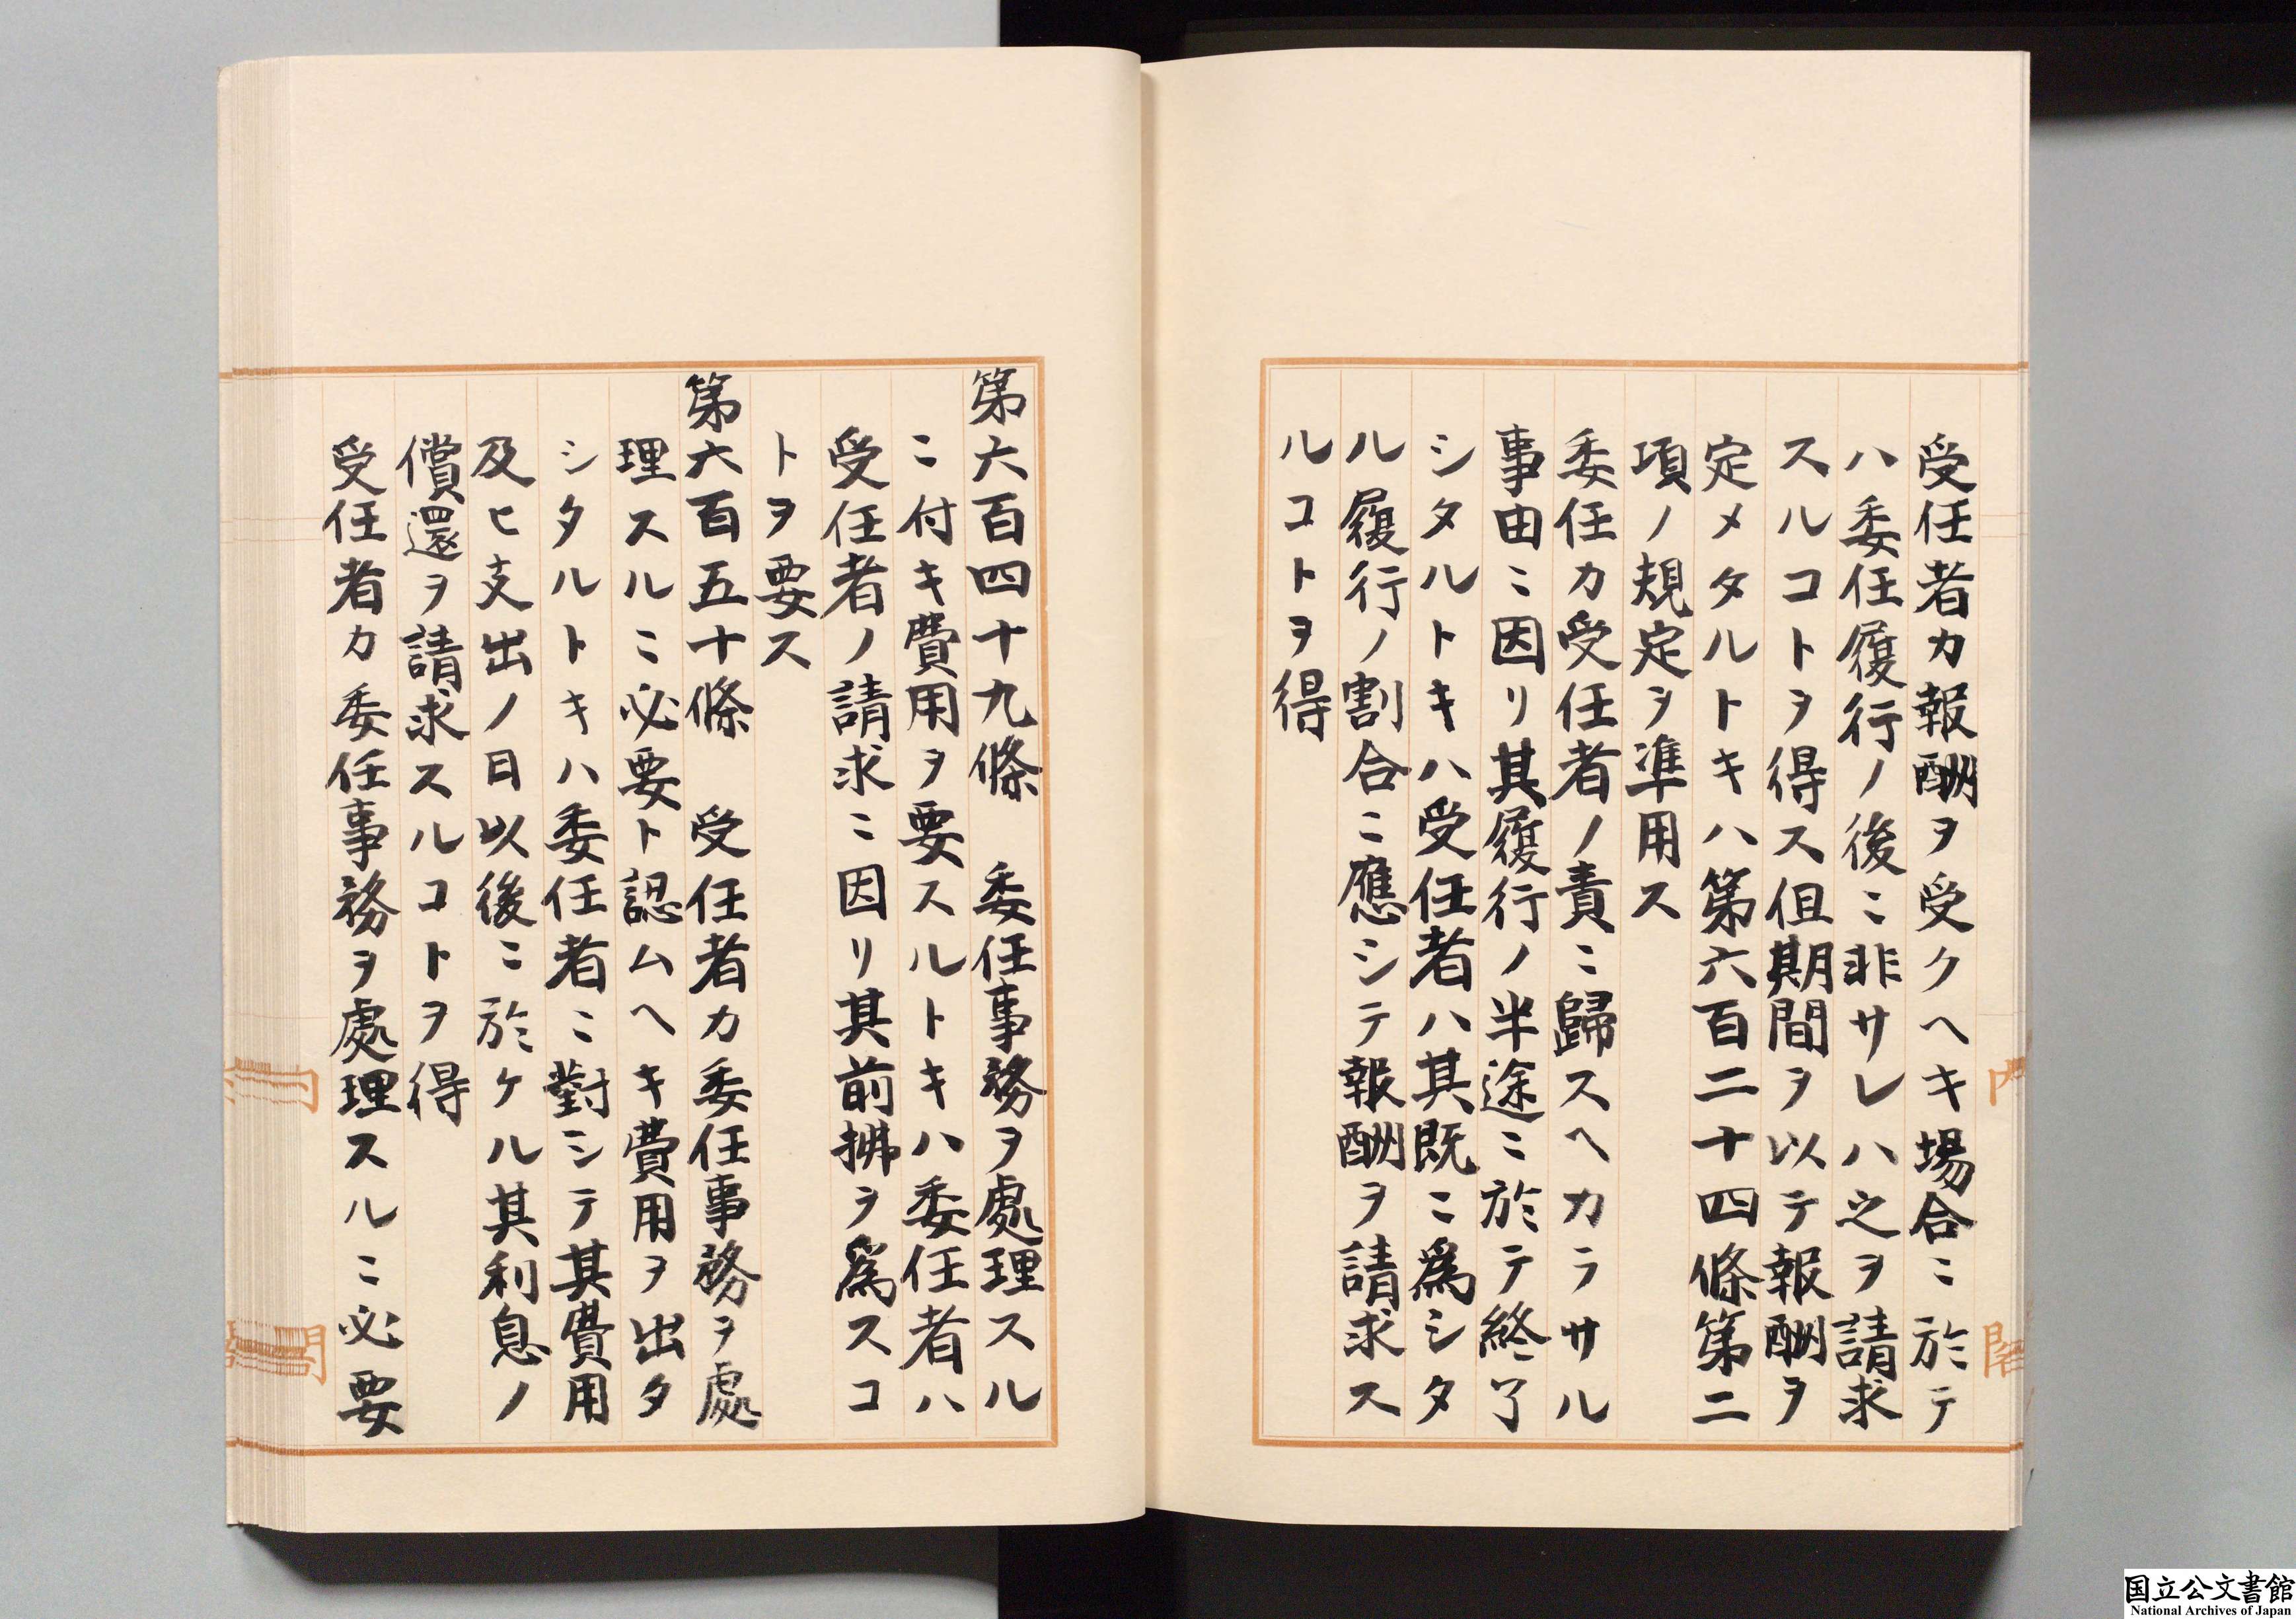 受任者カ報酬ヲ受クヘキ場合ニ於テ
ハ委任履行ノ後ニ非サレハ之ヲ請求
スルコトヲ得ス但期間ヲ以テ報酬ヲ
定メタルトキハ第六百二十四條第二
項ノ規定ヲ準用ス
委任カ受任者ノ責ニ歸スヘカラサル
事由ニ因リ其履行ノ半途ニ於テ終了
シタルトキハ受任者ハ其既ニ爲シタ
ル履行ノ割合ニ應シテ報酬ヲ請求ス
ルコトヲ得
第六百四十九條　委任事務ヲ處理スル
ニ付キ費用ヲ要スルトキハ委任者ハ
受任者ノ請求ニ因リ其前拂ヲ爲スコ
トヲ要ス
第六百五十條　受任者カ委任事務ヲ處
理スルニ必要ト認ムヘキ費用ヲ出タ
シタルトキハ委任者ニ對シテ其費用
及ヒ支出ノ日以後ニ於ケル其利息ノ
償還ヲ請求スルコトヲ得
受任者カ委任事務ヲ處理スルニ必要
国立公文書館
National Archives of Japan